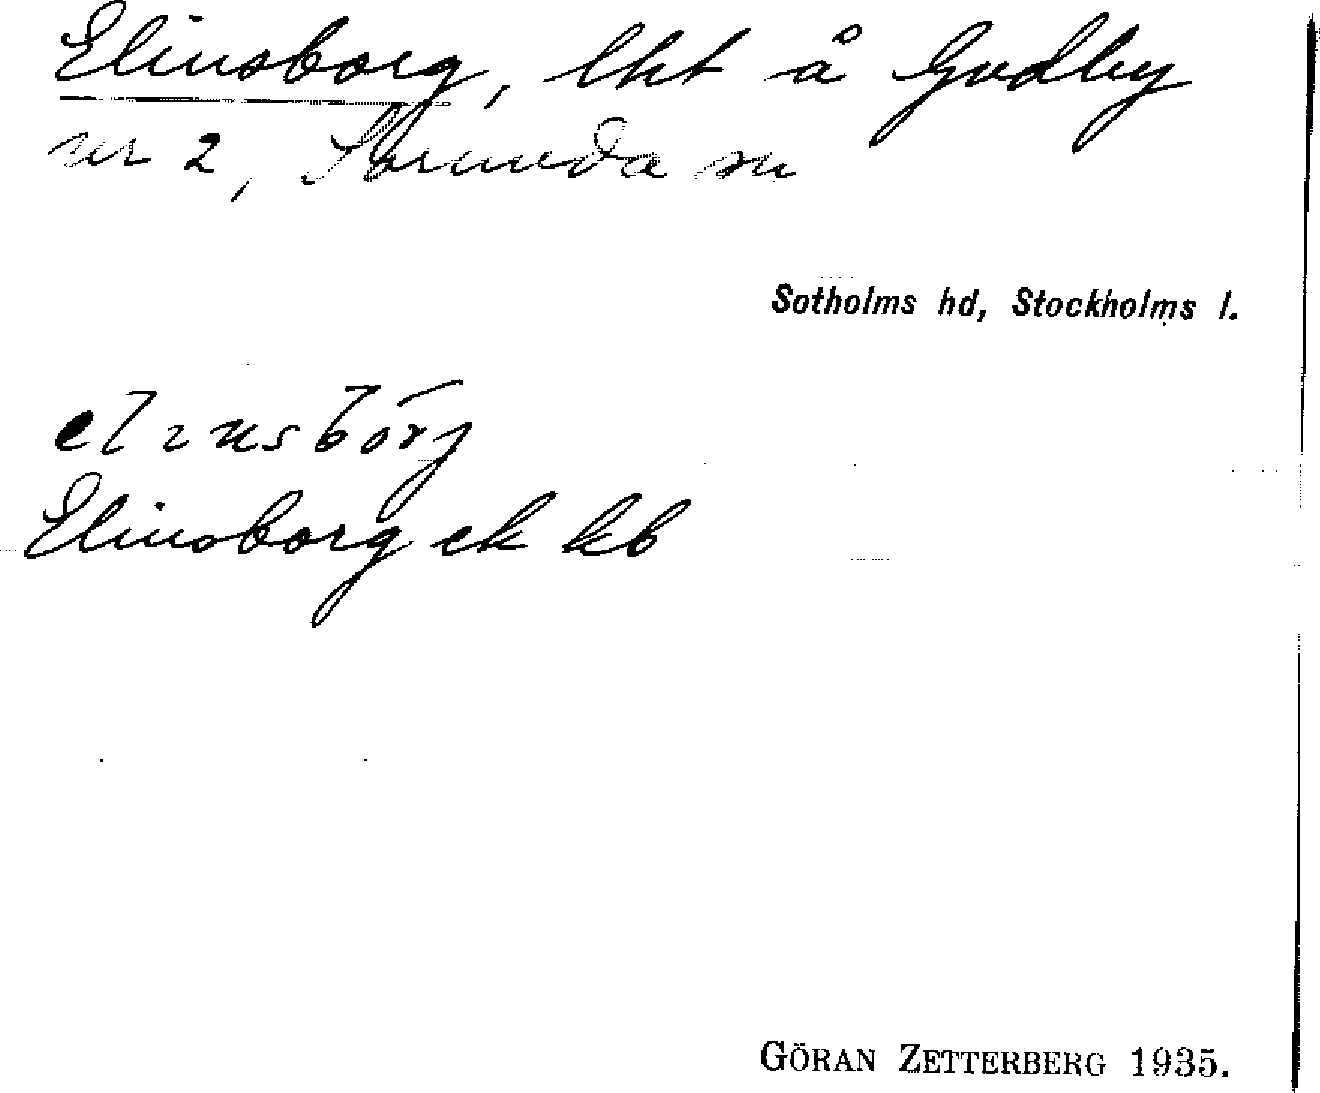 Elinsborg, lht å Gudby
nr 2, Sorunda sn
Sotholms hd, Stockholms l.
elinsborj
Elinsborg ek kb
GÖRAN ZETTERBERG 1935.